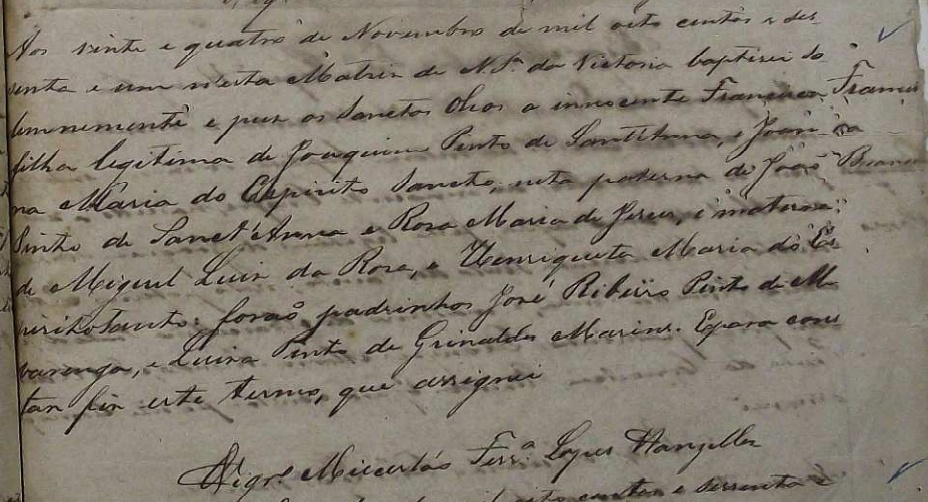 Aos vinte e quatro de Novembro de mil oito centos e ses
senta e um n'esta Matriz de N. Sª. da Victoria baptisei so
lemnemente e puz os Sanctos Oleos a innocente Francisca
filha legitima de Joaquim Pinto de Sant'Anna, e Joan
na Maria do Espirito Sancto, neta paterna de João
Pinto de Sanct'Anna e Rosa Maria de Jesus, e materna
de Miguel Luiz da Rosa, e Henriqueta Maria do Es
pirito Santo: forão padrinhos José Ribeiro Pinto de Al
varenga, e Luiza Pinto de Marins. E para cons
tar fiz este termo, que assignei
Vigrº. Ferrª. Lopes
Francis
ca
Branca
oito centos e sessenta e